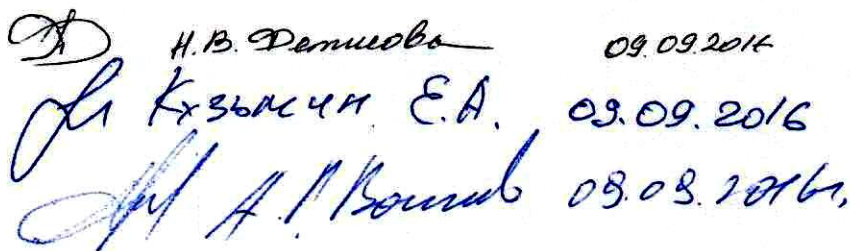 Н.В. Денисова 09.09.2016
Кузьмин Е.А. 09.09.2016
А. 09.09.2016г.